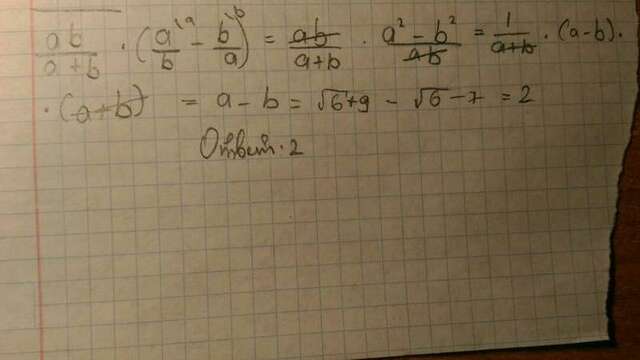 ab/(a+b) · (a/b \a − b/a \b) = ab/(a+b) · (a² − b²)/(ab) = 1/(a+b) · (a−b) ·
· (a+b) = a − b = √6+9 − √6−7 = 2
Ответ: 2